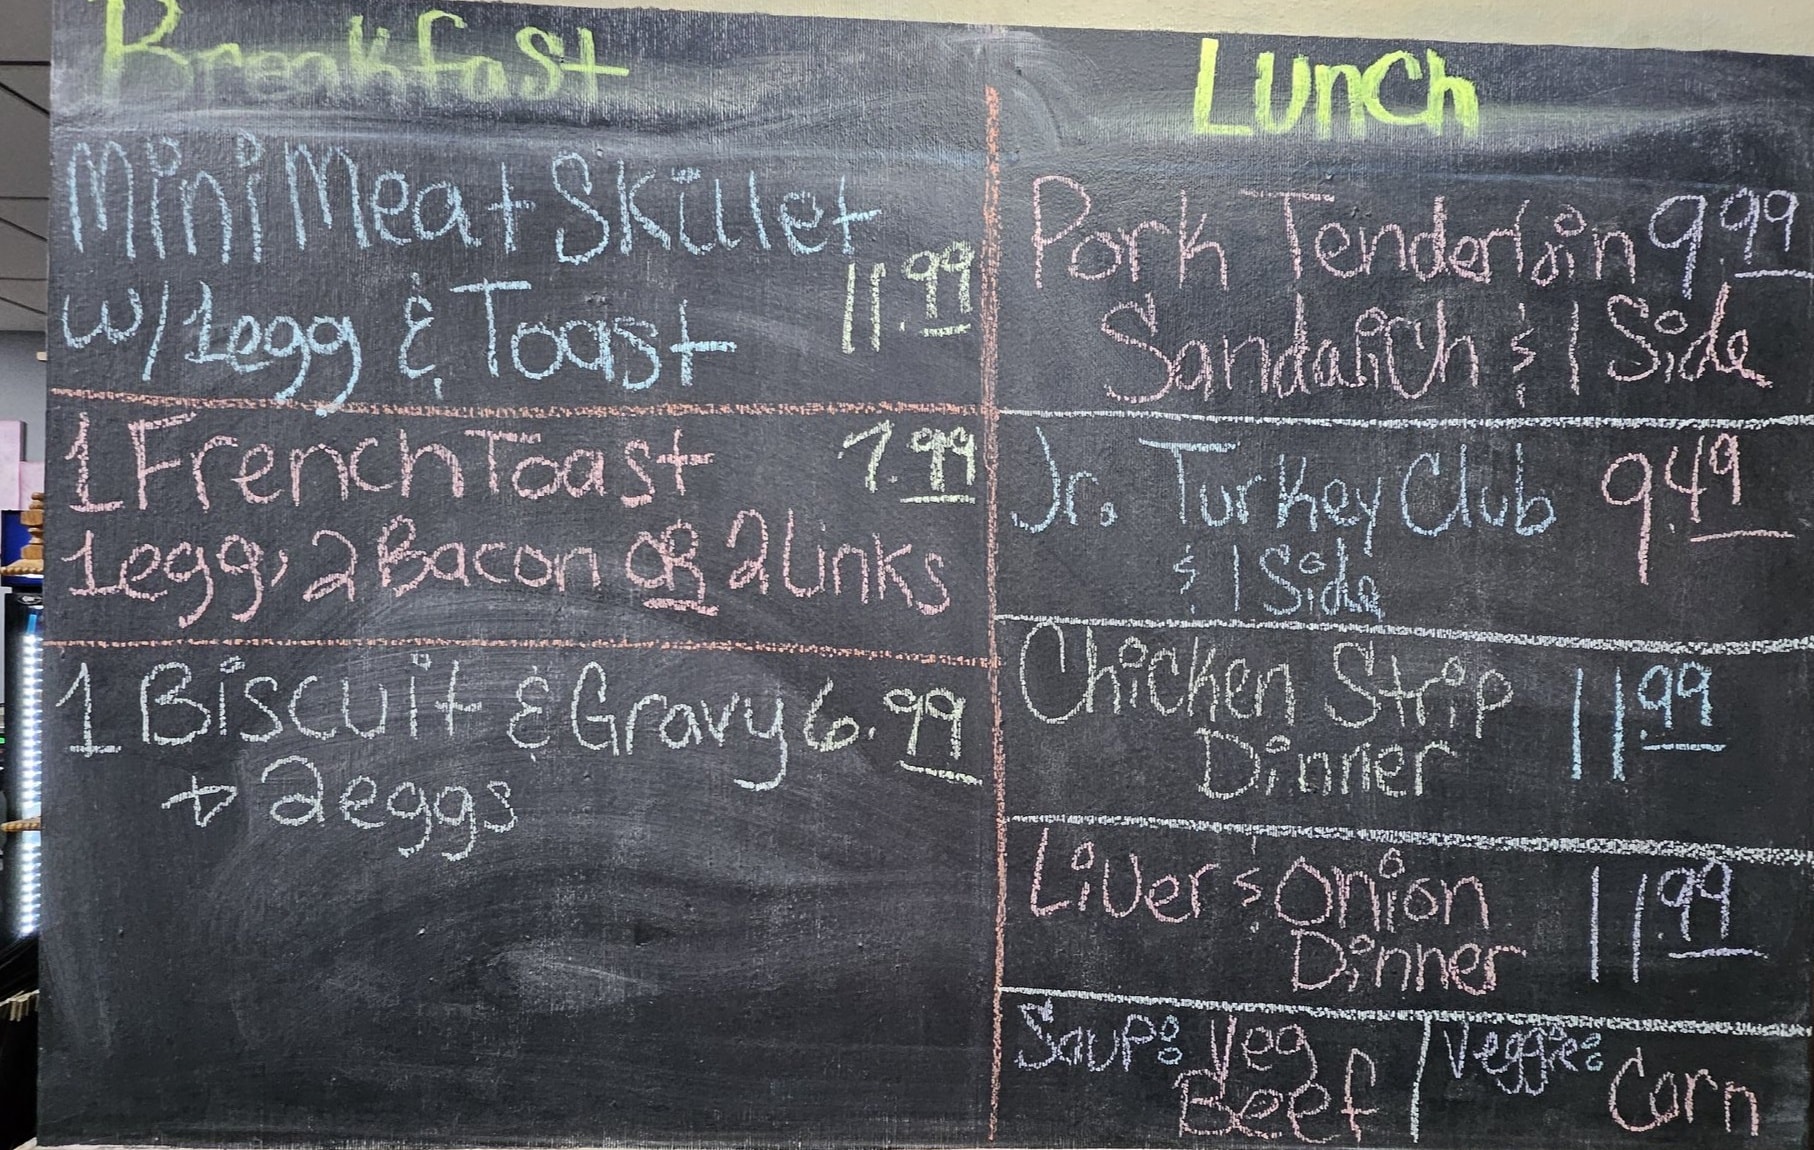 Breakfast
Mini Meat Skillet
w/1egg & Toast 11.99
1 French Toast 7.99
1egg, 2 Bacon OR 2 Links
1 Biscuit & Gravy 6.99
+ 2eggs
Lunch
Pork Tenderloin 9.99
Sandwich & 1 Side
Jr. Turkey Club 9.49
& 1 Side
Chicken Strip 11.99
Dinner
Liver & Onion 11.99
Dinner
Soup: Veg
Beef
Veggie: Corn